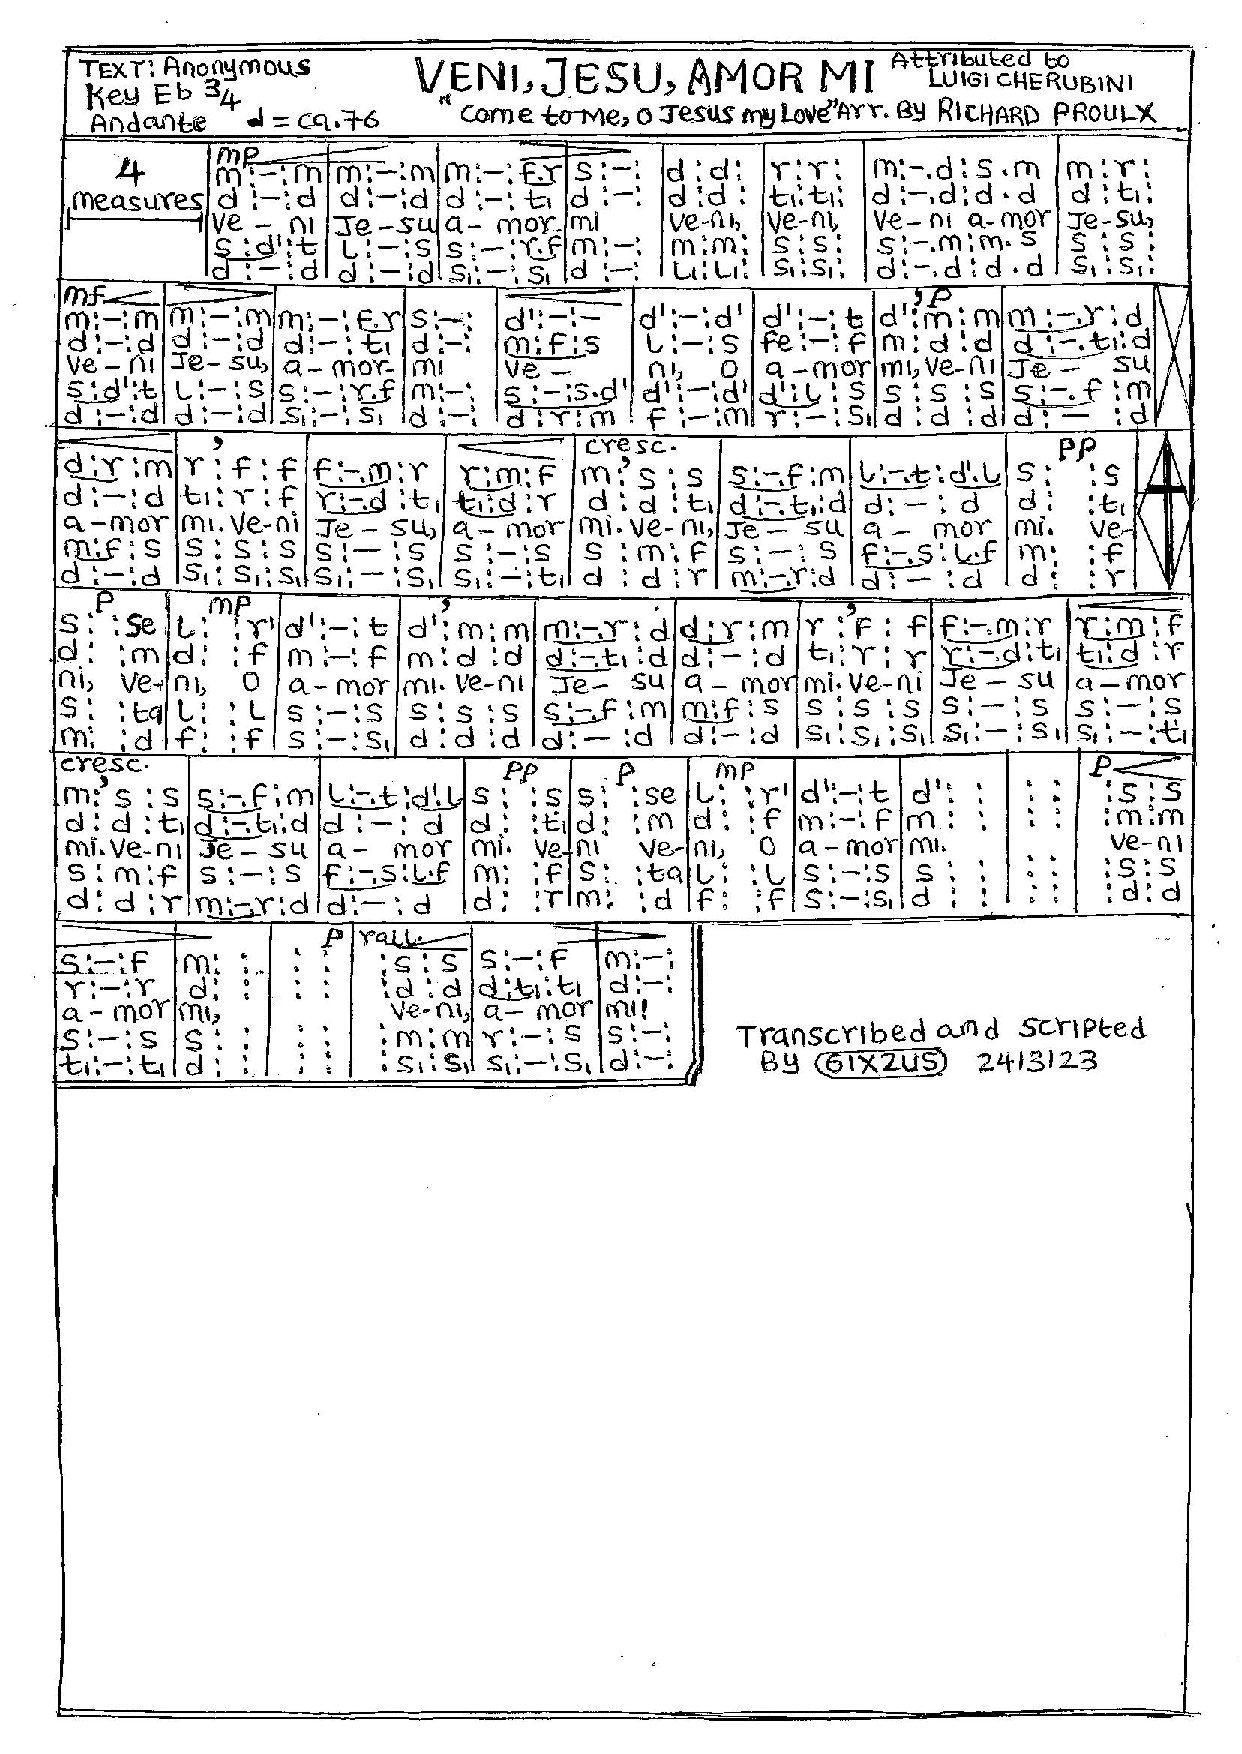 TEXT: Anonymous
Key Eb 3/4
Andante d = ca.76
VENI, JESU, AMOR MI
"Come to Me, O Jesus my Love" Arr. By RICHARD PROULX
Attributed to
LUIGI CHERUBINI
4
measures
mp
m:-:m|m:-:m|m:-:f.r|s:-:|d:d:|r:r:|m:-.d:s.m|m:r:
d:-:d|d:-:d|d:-:t₁|d:-:|d:d:|t₁:t₁:|d:-.d:d.d|d:t₁:
Ve-ni Je-su a-mor mi ve-ni, ve-ni, ve-ni a-mor Je-su,
s:d':t|l:-:s|s:-:r.f|m:-:|m:m:|s:s:|s:-.m:m.s|s:s:
d:-:d|d:-:d|s₁:-:s₁|d:-:|l₁:l₁:|s₁:s₁:|d:-.d:d.d|s₁:s₁:
mf , p
m:-:m|m:-:m|m:-:f.r|s:-:|d':-:-|d':-:d'|d':-:t|d':m:m|m:-.r:d
d:-:d|d:-:d|d:-:t₁|d:-:|m:f:s|l:-:s|fe:-:f|m:d:d|d:-.t₁:d
ve-ni Je-su, a-mor mi ve- ni, O a-mor mi, ve-ni Je- su
s:d':t|l:-:s|s:-:r.f|m:-:|s:-:s.d'|d':-:d'|d':l:s|s:s:s|s:-.f:m
d:-:d|d:-:d|s₁:-:s₁|d:-:|d:r:m|f:-:m|r:-:s₁|d:d:d|d:-:d
, cresc. pp
d:r:m|r:f:f|f:-.m:r|r:m:f|m:'s:s|s:-.f:m|l:-.t:d'.l|s: :s
d:-:d|t₁:r:f|r:-.d:t₁|t₁:d:r|d:d:t₁|d:-.t₁:d|d:-:d|d: :t₁
a-mor mi. ve-ni Je-su, a-mor mi. ve-ni, Je-su a- mor mi. ve-
m:f:s|s:s:s|s:-:s|s:-:s|s:m:f|s:-:s|f:-.s:l.f|m: :f
d:-:d|s₁:s₁:s₁|s₁:-:s₁|s₁:-:t₁|d:d:r|m:-.r:d|d:-:d|d: :r
p mp
s: :se|l: :r'|d':-:t|d':m:m|m:-.r:d|d:r:m|r:'f:f|f:-.m:r|r:m:f
d: :m|d: :f|m:-:f|m:d:d|d:-.t₁:d|d:-:d|t₁:r:r|r:-.d:t₁|t₁:d:r
ni, ve-ni, O a-mor mi. ve-ni Je- su a-mor mi. ve-ni Je-su a-mor
s: :ta|l: :l|s:-:s|s:s:s|s:-.f:m|m:f:s|s:s:s|s:-:s|s:-:s
m: :d|f: :f|s:-:s₁|d:d:d|d:-:d|d:-:d|s₁:s₁:s₁|s₁:-:s₁|s₁:-:t₁
cresc. pp p mp p
m:'s:s|s:-.f:m|l:-.t:d'.l|s: :s|s: :se|l: :r'|d':-:t|d': :|: :|:s:s
d:d:t₁|d:-.t₁:d|d:-:d|d: :t₁|d: :m|d: :f|m:-:f|m: :|: :|:m:m
mi. ve-ni Je-su a- mor mi. ve-ni ve-ni, O a-mor mi. ve-ni
s:m:f|s:-:s|f:-.s:l.f|m: :f|s: :ta|l: :l|s:-:s|s: :|: :|:s:s
d:d:r|m:-.r:d|d:-:d|d: :r|m: :d|f: :f|s:-:s₁|d: :|: :|:d:d
p rall.
s:-:f|m: :|: :|:s:s|s:-:f|m:-:
r:-:r|d: :|: :|:d:d|d:t₁:t₁|d:-:
a-mor mi, ve-ni, a-mor mi!
s:-:s|s: :|: :|:m:m|r:-:s|s:-:
t₁:-:t₁|d: :|: :|:s₁:s₁|s₁:-:s₁|d:-:
Transcribed and scripted
By 61X2US 24/3/23